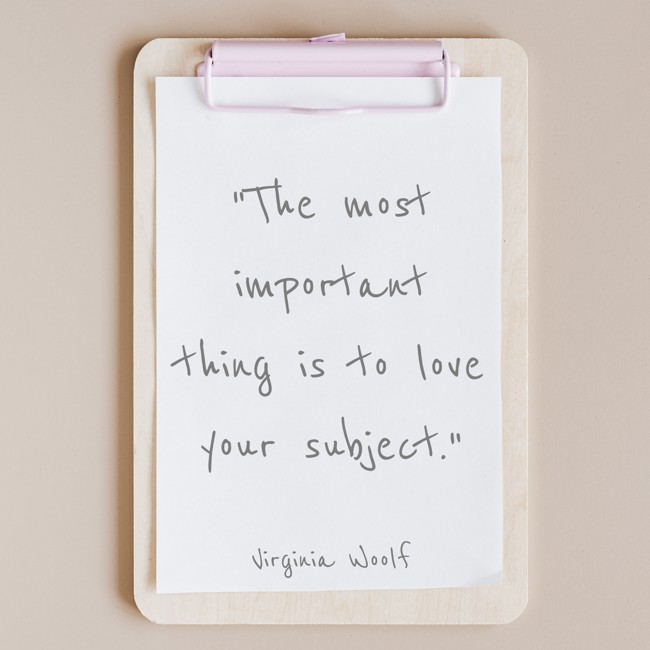 "The most
important
thing is to love
your subject."
Virginia Woolf